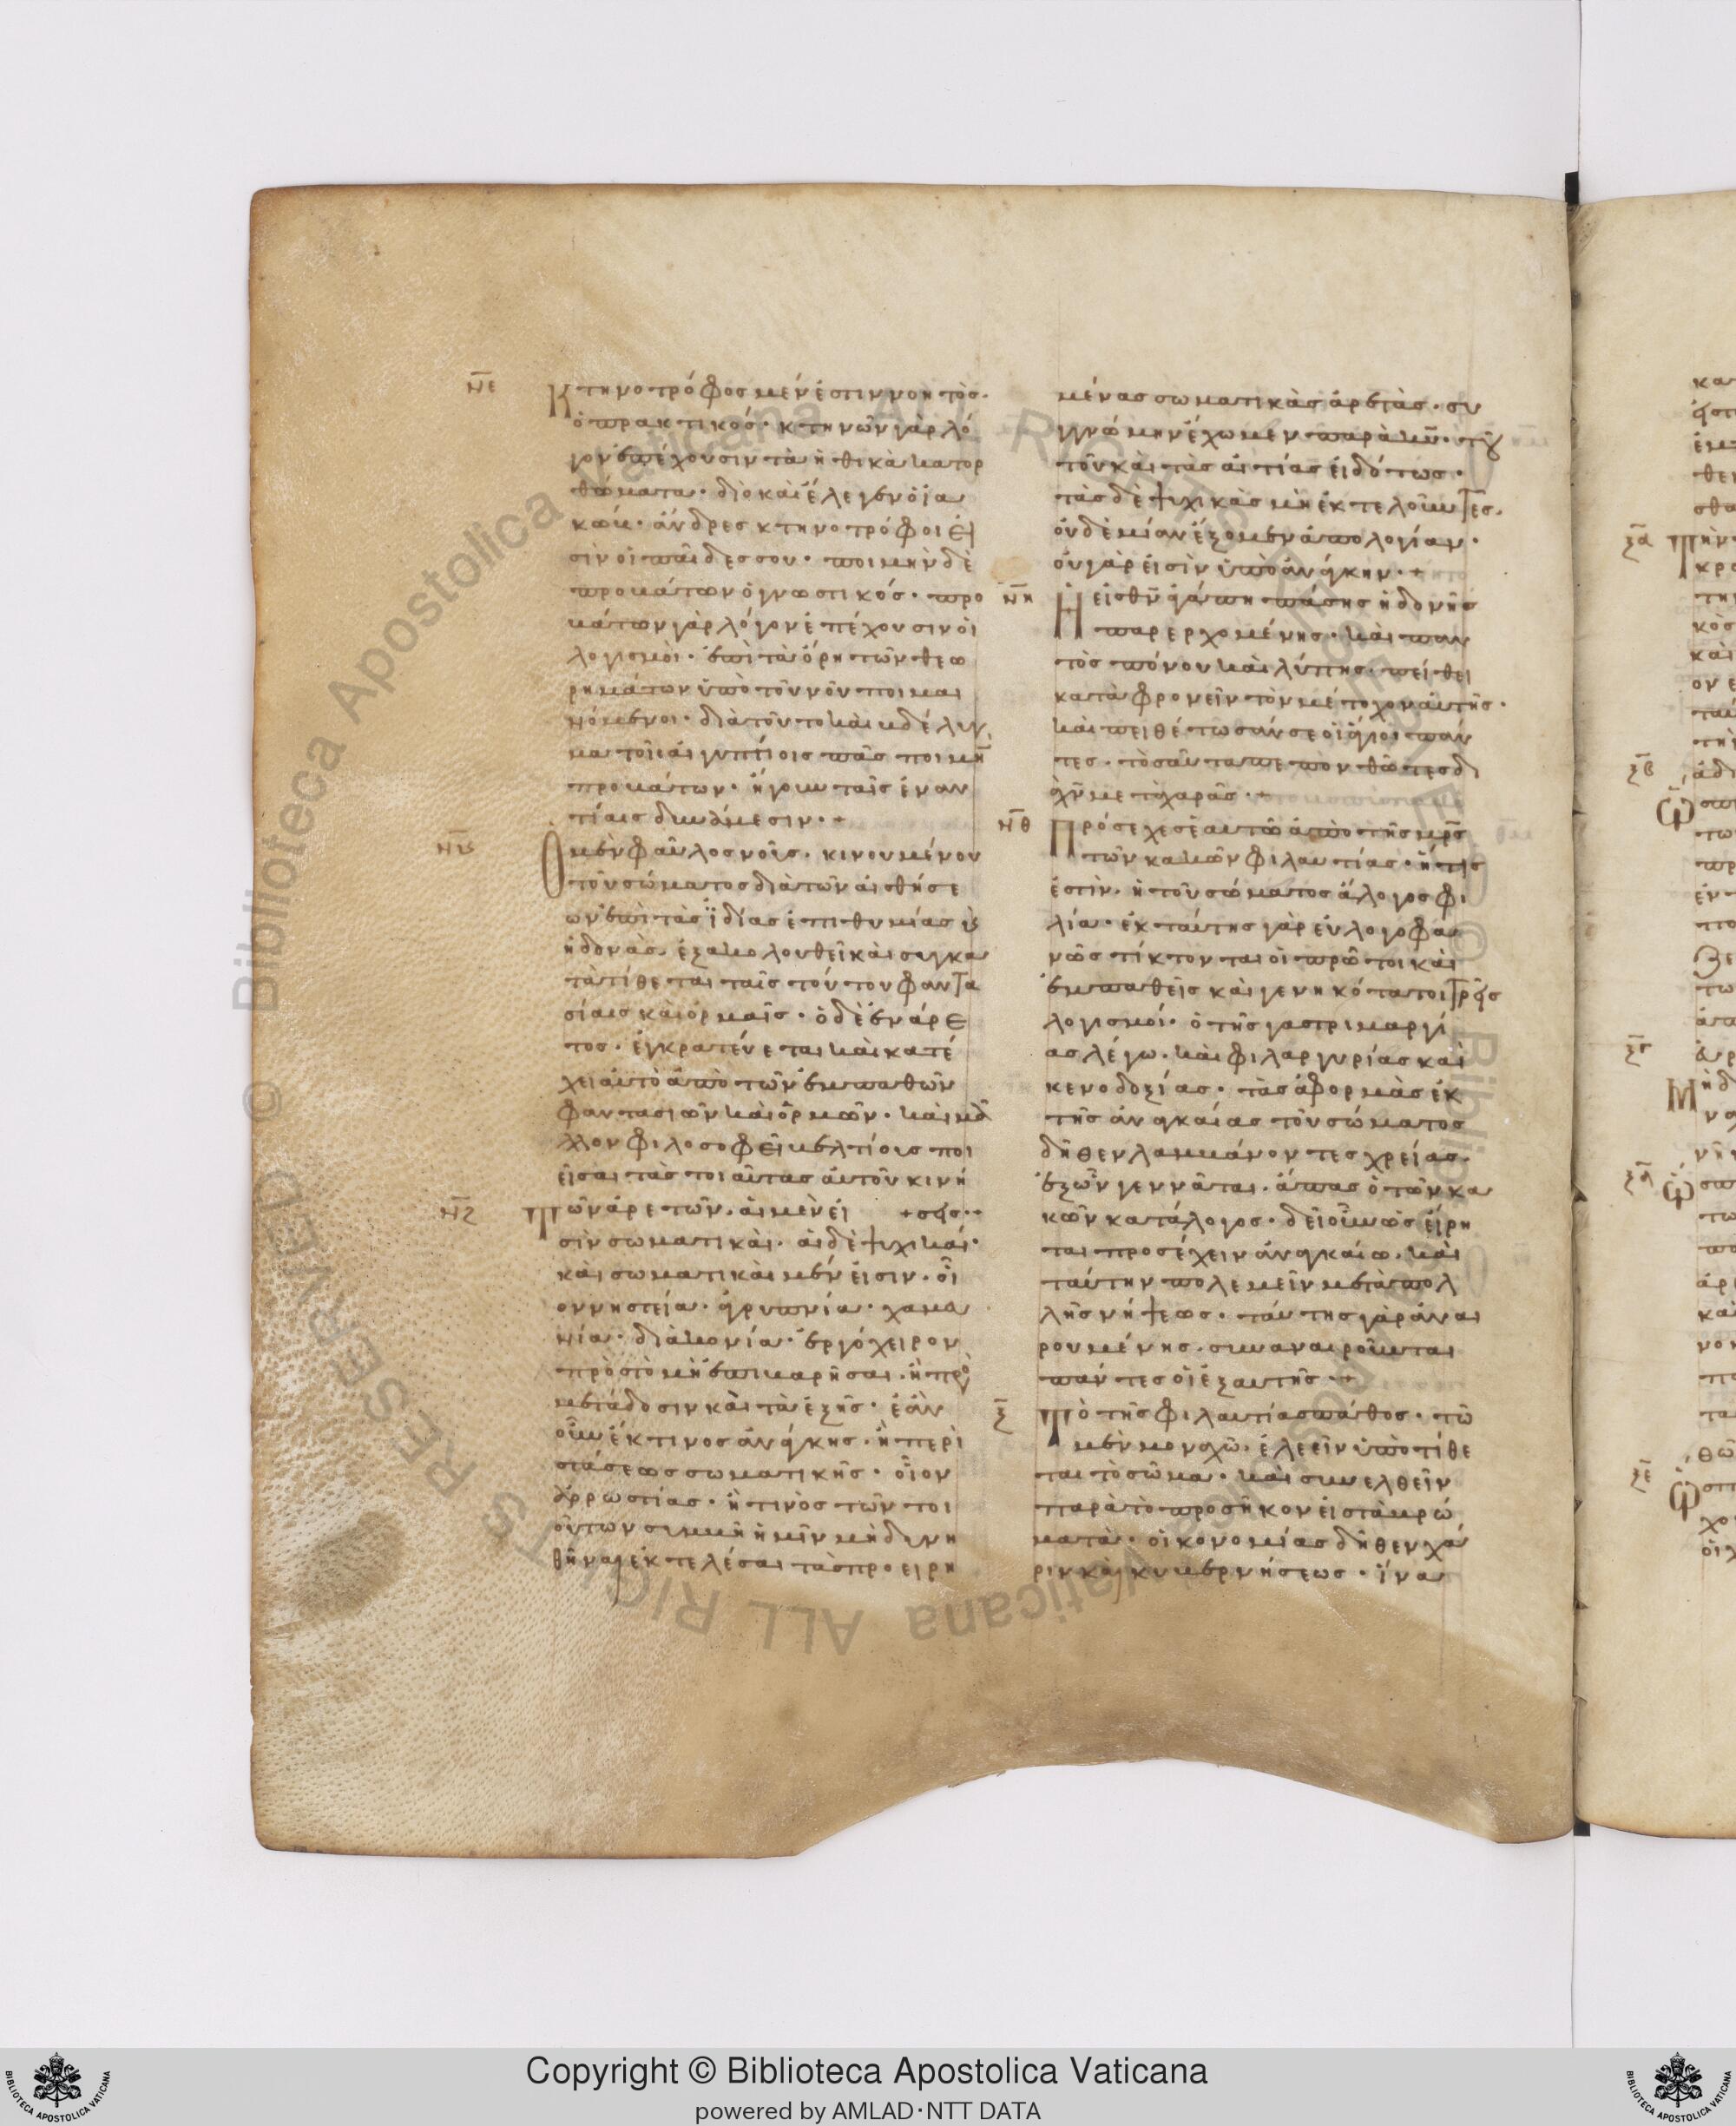 ν̅ε̅
Κτηνοτρόφος μέν ἐστιν νοητῶς·
ὁ πρακτικός· κτηνῶν γὰρ λό
γον ἐπέχουσιν τὰ ἠθικὰ κατορ
θώματα· διὸ καὶ ἔλεγεν ὁ ϊα
κώβ· ἄνδρες κτηνοτρόφοι εἰ
σὶν οἱ παῖδες σου· ποιμὴν δὲ
προβάτων ὁ γνωστικός· προ
βάτων γὰρ λόγον ἐπέχουσιν οἱ
λογισμοὶ· ἐπὶ τὰ ὄρη τῶν θεω
ρημάτων ὑπὸ τοῦ νοῦ ποιμαι
νόμενοι· διὰ τοῦτο καὶ βδέλυγ
μα τοῖς αἰγυπτίοις πᾶς ποιμὴν
προβάτων· ἤγουν ταῖς ἐναν
τίαις δυνάμεσιν·+
ν̅ϛ̅
Ὁ μὲν φαῦλος νοῦς· κινουμένου
τοῦ σώματος διὰ τῶν αἰσθήσε
ων ἐπὶ τὰς ϊδίας ἐπιθυμίας καὶ
ἡδονὰς· ἐξακολουθεῖ καὶ συγκα
τατίθεται ταῖς τούτου φαντα
σίαις καὶ ὁρμαῖς· ὁ δὲ ἐνάρε
τος· ἐγκρατεύεται καὶ κατέ
χει αὐτὸ ἀπὸ τῶν ἐμπαθῶν
φαντασιῶν καὶ ὁρμῶν· καὶ μᾶ
λλον φιλοσοφεῖ βελτίους ποι
εῖσαι τὰς τοιαύτας αὐτοῦ κινή
+σεις·+
ν̅ζ̅
Τῶν ἀρετῶν· αἱ μὲν εἰ
σὶν σωματικαὶ· αἱ δὲ ψυχικαί·
καὶ σωματικαὶ μέν εἰσιν· οἷ
ον νηστεία· ἀγρυπνία· χαμευ
νία· διακονία· ἐργόχειρον
πρὸς τὸ μὴ ἐπιβαρῆσαι· ἢ πρὸς
μετάδοσιν καὶ τὰ ἑξῆς· ἐὰν
οὖν ἔκ τινος ἀνάγκης· ἢ περι
στάσεως σωματικῆς· οἷον
ἀρρωστίας· ἤ τινος τῶν τοι
ούτων συμβῇ ἡμῖν μὴ δυνη
θῆναι ἐκτελέσαι τὰς προειρη
μένας σωματικὰς ἀρετὰς· συ
γγνώμην ἔχωμεν παρὰ κυ̅· τοῦ
τοῦ καὶ τὰς αἰτίας εἰδότως·
τὰς δὲ ψυχικὰς μὴ ἐκτελοῦντες·
οὐδὲμίαν ἕξομεν ἀπολογίαν·
οὐ γάρ εἰσιν ὑπὸ ἀνάγκην·+
ν̅η̅
Ἡ εἰς θν̅ ἀγάπη πάσης ἡδονῆς
παρερχομένης· καὶ παν
τὸς πόνου καὶ λύπης· πείθει
καταφρονεῖν τὸν μέτοχον αὐτῆς·
καὶ πειθέτωσάν σε οἱ ἅγιοι πάν
τες· τοσαῦτα πεπονθότες δι
α χν̅ μετὰ χαρᾶς·+
ν̅θ̅
Πρόσεχε σεαυτῶ ἀπὸ τῆς μρ̅ς
τῶν κακῶν φιλαυτίας· ἥτις
ἐστὶν· ἡ τοῦ σώματος ἄλογος φι
λία· ἐκ ταύτης γὰρ εὐλογοφα
νῶς τίκτονται οἱ πρῶτοι καὶ
ἐμπαθεῖς καὶ γενηκότατοι τρεῖς
λογισμοί· ὁ τῆς γαστριμαργί
ας λέγω· καὶ φιλαργυρίας καὶ
κενοδοξίας· τὰς ἀφορμὰς ἐκ
τῆς ἀναγκαίας τοῦ σώματος
δῆθεν λαμβάνοντες χρείας·
ἐξ ὧν γεννᾶται· ἅπας ὁ τῶν κα
κῶν κατάλογος· δεῖ οὖν ὡς εἴρη
ται προσέχειν ἀναγκαίω· καὶ
ταύτην πολεμεῖν μετὰ πολ
λῆς νήψεως· ταύτης γὰρ ἀναι
ρουμένης· συναναιροῦνται
πάντες οἱ ἐξ αυτῆς·+
ξ̅
Τὸ τῆς φιλαυτίας πάθος· τῶ
μὲν μοναχῶ· ἐλεεῖν ὑποτίθε
ται τὸ σῶμα· καὶ συνελθεῖν
παρὰ τὸ προσῆκον εἰς τὰ βρώ
ματα· οἰκονομίας δῆθεν χά
ριν καὶ κυβερνήσεως· ἵνα
ξ̅α̅
ξ̅β̅
ξ̅γ̅
ξ̅δ̅
ξ̅ε̅
Copyright © Biblioteca Apostolica Vaticana
powered by AMLAD·NTT DATA